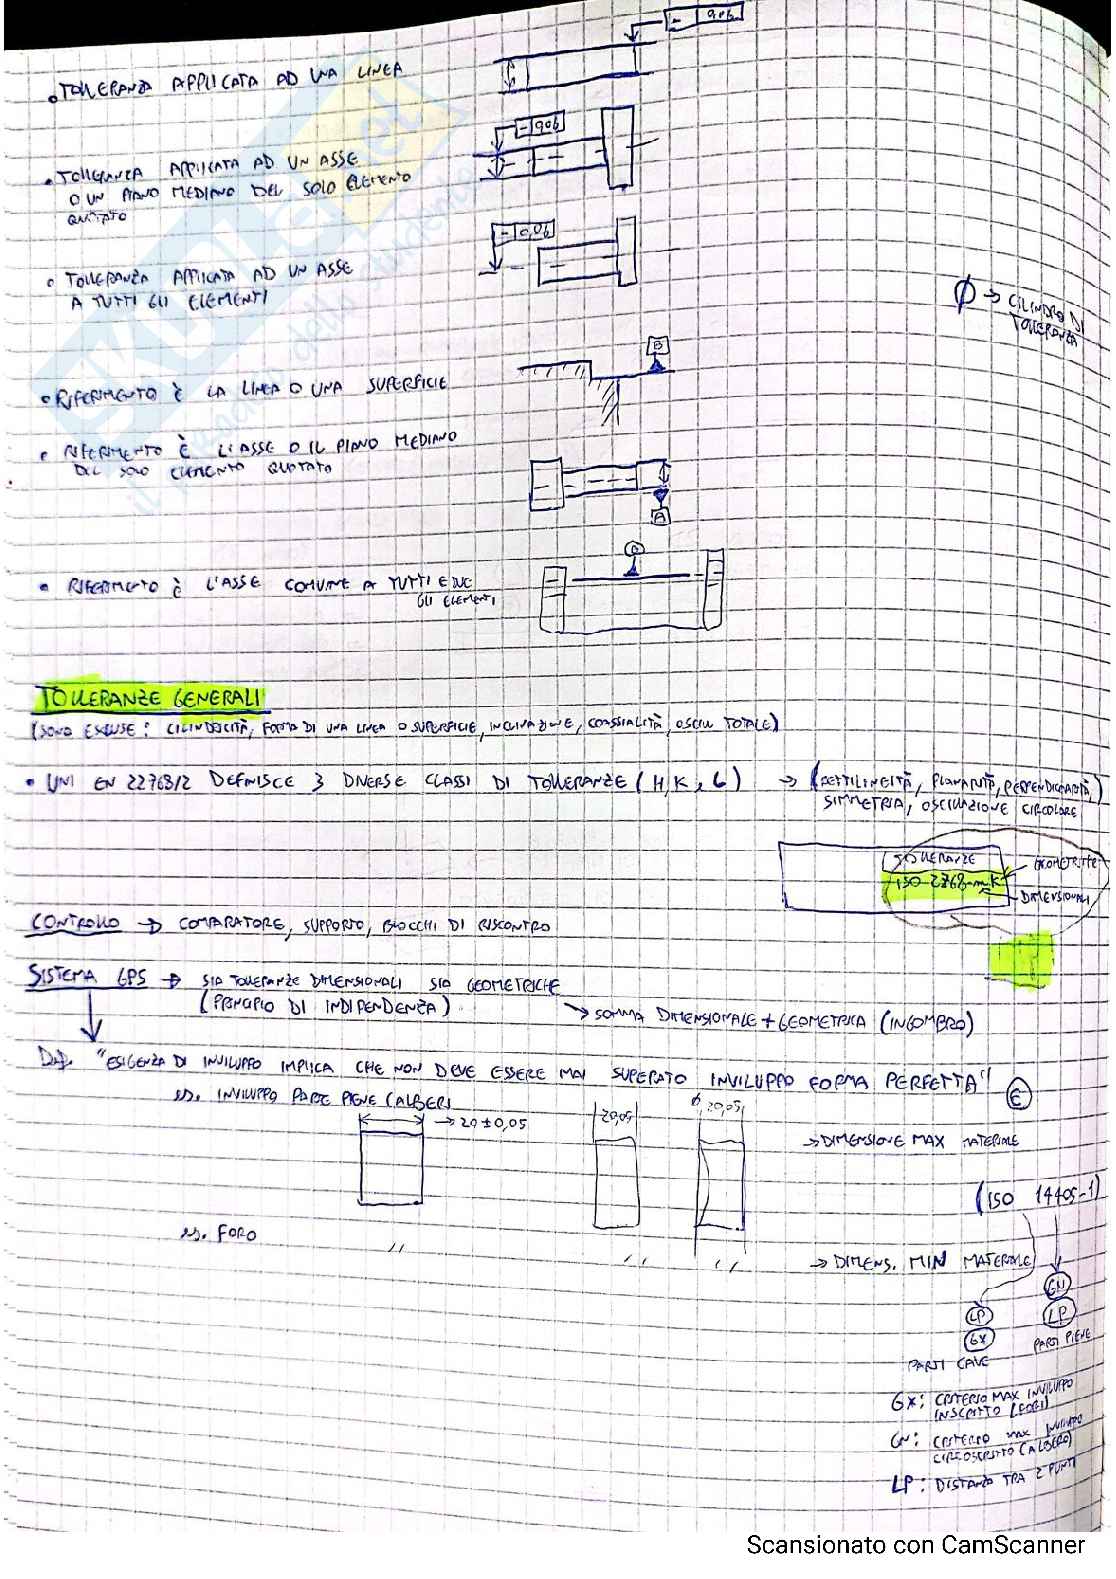 - 0,06
• TOLLERANZA APPLICATA AD UNA LINEA
- 0,06
• TOLLERANZA APPLICATA AD UN ASSE
O UN PIANO MEDIANO DEL SOLO ELEMENTO
QUOTATO
- 0,06
• TOLLERANZA APPLICATA AD UN ASSE
A TUTTI GLI ELEMENTI
Ø → CILINDRO DI
TOLLERANZA
B
• RIFERIMENTO È LA LINEA O UNA SUPERFICIE
• RIFERIMENTO È L'ASSE O IL PIANO MEDIANO
DEL SOLO ELEMENTO QUOTATO
A
• RIFERIMENTO È L'ASSE COMUNE A TUTTI E DUE
GLI ELEMENTI
TOLLERANZE GENERALI
(SONO ESCLUSE: CILINDRICITÀ, FORMA DI UNA LINEA O SUPERFICIE, INCLINAZIONE, COASSIALITÀ, OSCILL TOTALE)
• UNI EN 22768/2 DEFINISCE 3 DIVERSE CLASSI DI TOLLERANZE (H, K, L) → (RETTILINEITÀ, PLANARITÀ, PERPENDICOLARITÀ,)
SIMMETRIA, OSCILLAZIONE CIRCOLARE
TOLLERANZE
GEOMETRICHE
ISO 2768-mK
DIMENSIONALI
CONTROLLO → COMPARATORE, SUPPORTO, BLOCCHI DI RISCONTRO
SISTEMA GPS → SIA TOLLERANZE DIMENSIONALI SIA GEOMETRICHE
(PRINCIPIO DI INDIPENDENZA)
→ SOMMA DIMENSIONALE + GEOMETRICA (INGOMBRO)
Def. "ESIGENZA DI INVILUPPO IMPLICA CHE NON DEVE ESSERE MAI SUPERATO INVILUPPO FORMA PERFETTA" E
es. INVILUPPO PARTE PIENE (ALBERI
→ 20 ± 0,05
20,05
Ø 20,05
→ DIMENSIONE MAX MATERIALE
(ISO 14405-1)
es. FORO
//
//
//
→ DIMENS. MIN MATERIALE
GN
LP
LP
GX
PARTI PIENE
PARTI CAVE
GX: CRITERIO MAX INVILUPPO
INSCRITTO (FORI)
GN: CRITERIO MAX INVILUPPO
CIRCOSCRITTO (ALBERO)
LP: DISTANZA TRA 2 PUNTI
Scansionato con CamScanner